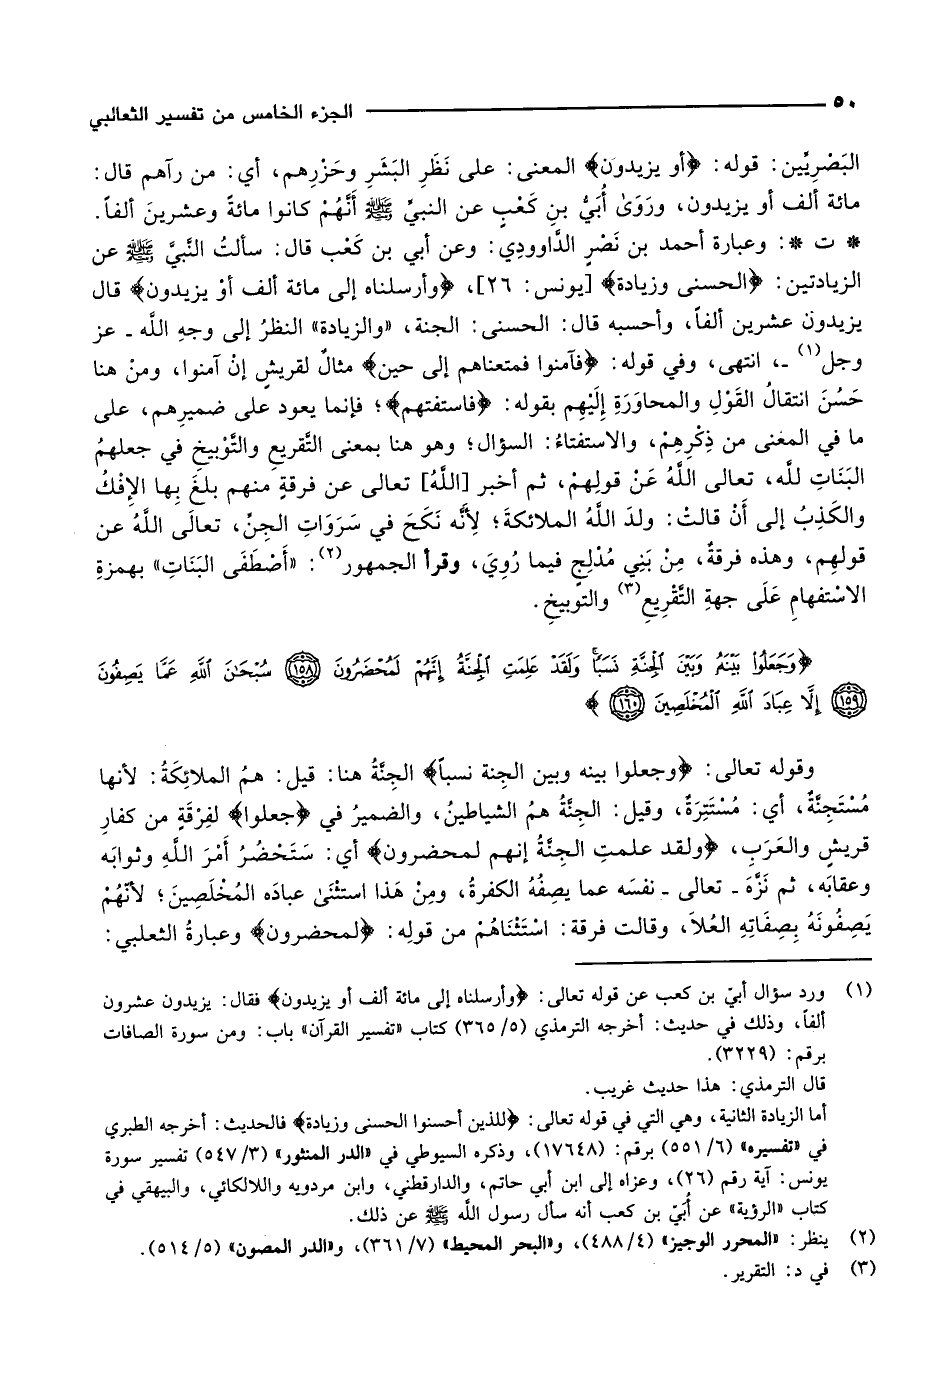 ٥٠ الجزء الخامس من تفسير الثعالبي
البَصْرِيِّين: قوله: ﴿أو يزيدون﴾ المعنى: على نَظَرِ البَشَرِ وحَزْرِهم، أي: من رآهم قال:
مائة ألف أو يزيدون، ورَوَىٰ أُبَيُّ بنِ كَعْبٍ عن النبيِّ ﷺ أَنَّهُمْ كانوا مائةً وعشرينَ ألفاً.
* ت *: وعبارة أحمد بن نَصْرٍ الدَّاوودِي: وعن أبي بن كَعْب قال: سألتُ النَّبيَّ ﷺ عن
الزيادتين: ﴿الحسنى وزيادة﴾ [يونس: ٢٦]، ﴿وأرسلناه إلى مائة ألف أوْ يزيدون﴾ قال
يزيدون عشرين ألفاً، وأحسبه قال: الحسنى: الجنة، «والزيادة» النظرُ إلى وجهِ اللَّه ـ عز
وجل(١) ـ، انتهى، وفي قوله: ﴿فآمنوا فمتعناهم إلى حين﴾ مثالٌ لقريشٍ إنْ آمنوا، ومنْ هنا
حَسُنَ انتقالُ القَوْلِ والمحاوَرَةِ إلَيْهِم بقوله: ﴿فاستفتهم﴾؛ فإنما يعود على ضميرِهم، على
ما في المعْنى من ذِكْرِهِمْ، والاستفتاءُ: السؤال؛ وهو هنا بمعنى التَّقريعِ والتَّوْبيخِ في جعلهمُ
البَنَاتِ للَّه، تعالى اللَّهُ عَنْ قولِهِمْ، ثم أخبر [اللَّهُ] تعالى عن فرقةٍ منهم بلغَ بِها الإفْكُ
والكَذِبُ إلى أنْ قالتْ: ولدَ اللَّهُ الملائكةَ؛ لِأَنَّه نَكَحَ في سَرَوَاتِ الجنِّ، تعالَى اللَّهُ عن
قولهِم، وهذه فرقةٌ، مِنْ بَنِي مُدْلِجٍ فيما رُوِيَ، وقرأ الجمهور(٢): «أَصْطَفَى البَنَاتِ» بهمزةِ
الاسْتفهامِ عَلَى جهةِ التَّقْرِيعِ(٣) والتوبيخِ.
﴿وَجَعَلُوا بَيْنَهُ وَبَيْنَ الْجِنَّةِ نَسَبًا وَلَقَدْ عَلِمَتِ الْجِنَّةُ إِنَّهُمْ لَمُحْضَرُونَ (١٥٨) سُبْحَانَ اللَّهِ عَمَّا يَصِفُونَ
(١٥٩) إِلَّا عِبَادَ اللَّهِ الْمُخْلَصِينَ (١٦٠)﴾
وقوله تعالى: ﴿وجعلوا بينه وبين الجِنة نسباً﴾ الجِنَّةُ هنا: قيل: همُ الملائِكَةُ: لأنها
مُسْتَجِنَّةٌ، أي: مُسْتَتِرَةٌ، وقيل: الجِنَّةُ همُ الشياطينُ، والضميرُ في ﴿جعلوا﴾ لفِرْقَةٍ من كفارِ
قريشٍ والعَرَبِ، ﴿ولقد علمتِ الجِنَّةُ إنهم لمحضرون﴾ أي: سَتَحْضُرُ أَمْرَ اللَّهِ وثوابَه
وعقابَه، ثم نَزَّهَ ـ تعالى ـ نفسَه عما يصفُهُ الكفرةُ، ومِنْ هَذَا استثْنَىٰ عبادَه المُخْلَصِينَ؛ لأنَّهُمْ
يَصِفُونَهُ بِصِفَاتِهِ العُلاَ، وقالت فرقة: اسْتَثْنَاهُمْ من قولِه: ﴿لمحضرون﴾ وعبارةُ الثعلبي:
(١) ورد سؤال أبيّ بن كعب عن قوله تعالى: ﴿وأرسلناه إلى مائة ألف أو يزيدون﴾ فقال: يزيدون عشرون
ألفاً، وذلك في حديث: أخرجه الترمذي (٣٦٥/٥) كتاب «تفسير القرآن» باب: ومن سورة الصافات
برقم: (٣٢٢٩).
قال الترمذي: هذا حديث غريب.
أما الزيادة الثانية، وهي التي في قوله تعالى: ﴿للذين أحسنوا الحسنى وزيادة﴾ فالحديث: أخرجه الطبري
في «تفسيره» (٥٥١/٦) برقم: (١٧٦٤٨)، وذكره السيوطي في «الدر المنثور» (٥٤٧/٣) تفسير سورة
يونس: آية رقم (٢٦)، وعزاه إلى ابن أبي حاتم، والدارقطني، وابن مردويه واللالكائي، والبيهقي في
كتاب «الرؤية» عن أُبَيّ بن كعب أنه سأل رسول اللَّه ﷺ عن ذلك.
(٢) ينظر: «المحرر الوجيز» (٤٨٨/٤)، و«البحر المحيط» (٣٦١/٧)، و«الدر المصون» (٥١٤/٥).
(٣) في د: التقرير.